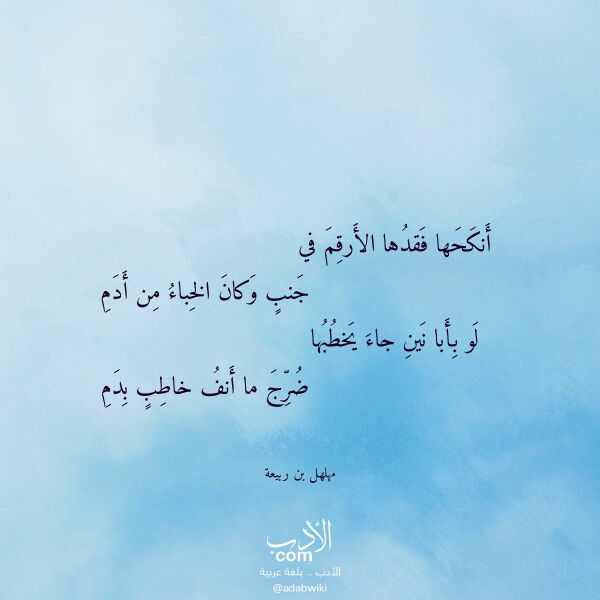 أَنكَحَها فَقدُها الأَرقِمَ في
جَنبٍ وَكانَ الخِباءُ مِن أَدَمِ
لَو بِأَبا نَينِ جاءَ يَخطُبُها
ضُرِّجَ ما أَنفُ خاطِبٍ بِدَمِ
مهلهل بن ربيعة
الأدب
com
الأدب .. بلغة عربية
@adabwiki